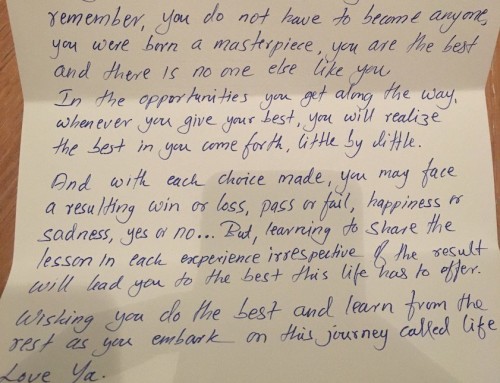 remember, you do not have to become anyone,
you were born a masterpiece, you are the best
and there is no one else like you
In the opportunities you get along the way,
whenever you give your best, you will realize
the best in you come forth, little by little.
And with each choice made, you may face
a resulting win or loss, pass or fail, happiness or
sadness, yes or no... But, learning to share the
lesson in each experience irrespective of the result
will lead you to the best this life has to offer.
Wishing you do the best and learn from the
rest as you embark on this journey called life
Love Ya.